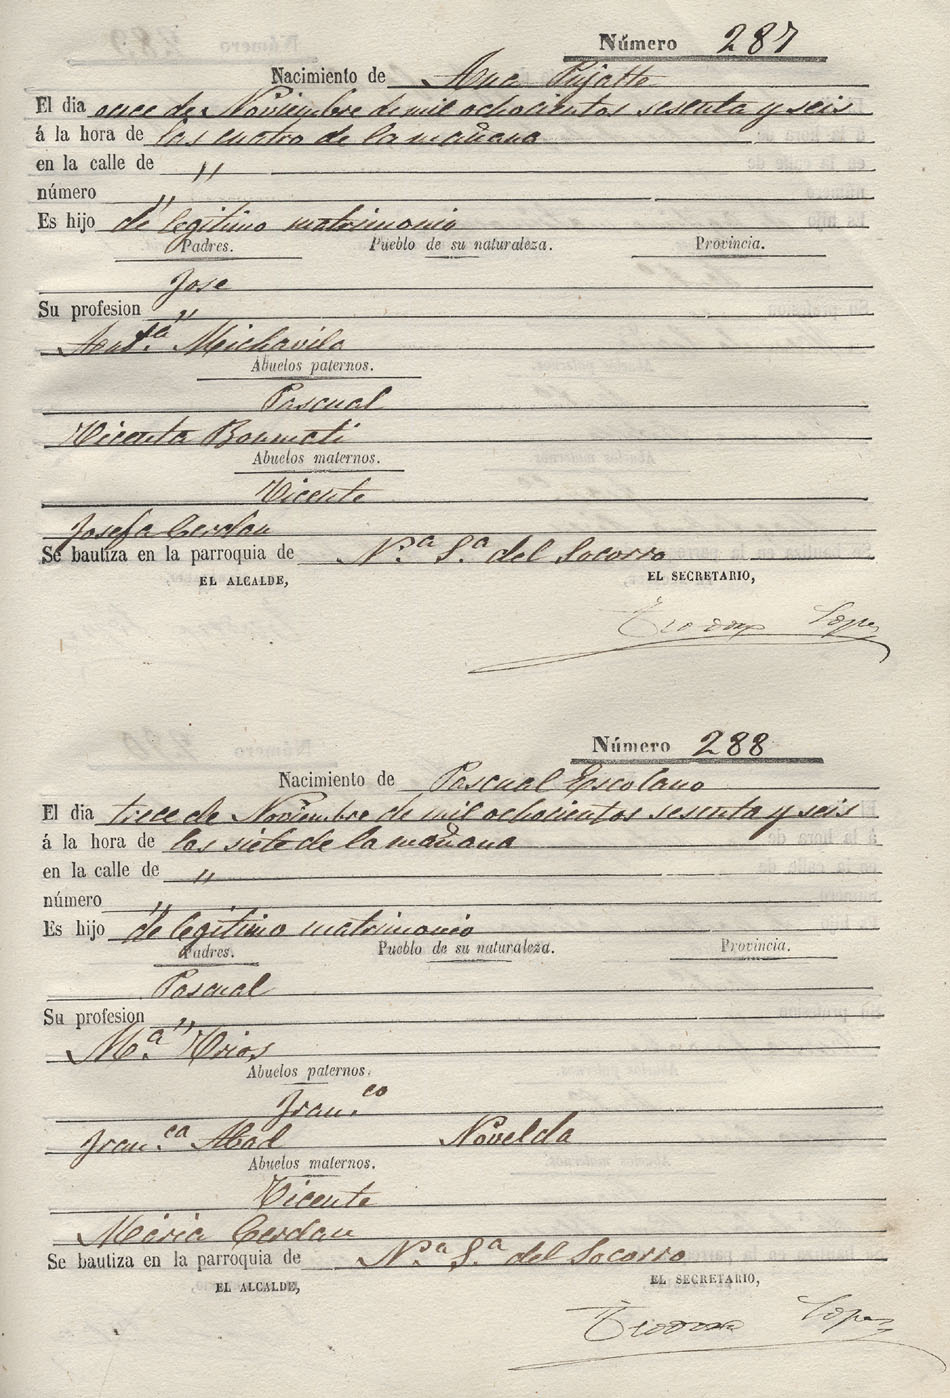 Número 287
Nacimiento de Ana Pujalte
El dia once de Noviembre de mil ochocientos sesenta y seis
á la hora de las cuatro de la mañana
en la calle de "
número "
Es hijo de legitimo matrimonio
Padres. Pueblo de su naturaleza. Provincia.
Jose
Su profesion "
Antª. Michavila
Abuelos paternos.
Pascual
Vicenta Bonmati
Abuelos maternos.
Vicente
Josefa Cerdan
Se bautiza en la parroquia de N.ª S.ª del Socorro
EL ALCALDE, EL SECRETARIO,
Teodoro Lopez
Número 288
Nacimiento de Pascual Escolano
El dia trece de Noviembre de mil ochocientos sesenta y seis
á la hora de las siete de la mañana
en la calle de "
número "
Es hijo de legitimo matrimonio
Padres. Pueblo de su naturaleza. Provincia.
Pascual
Su profesion "
M.ª
Abuelos paternos.
Fran.co
Fran.ca Abad Novelda
Abuelos maternos.
Vicente
Maria Cerdan
Se bautiza en la parroquia de N.ª S.ª del Socorro
EL ALCALDE, EL SECRETARIO,
Teodoro Lopez